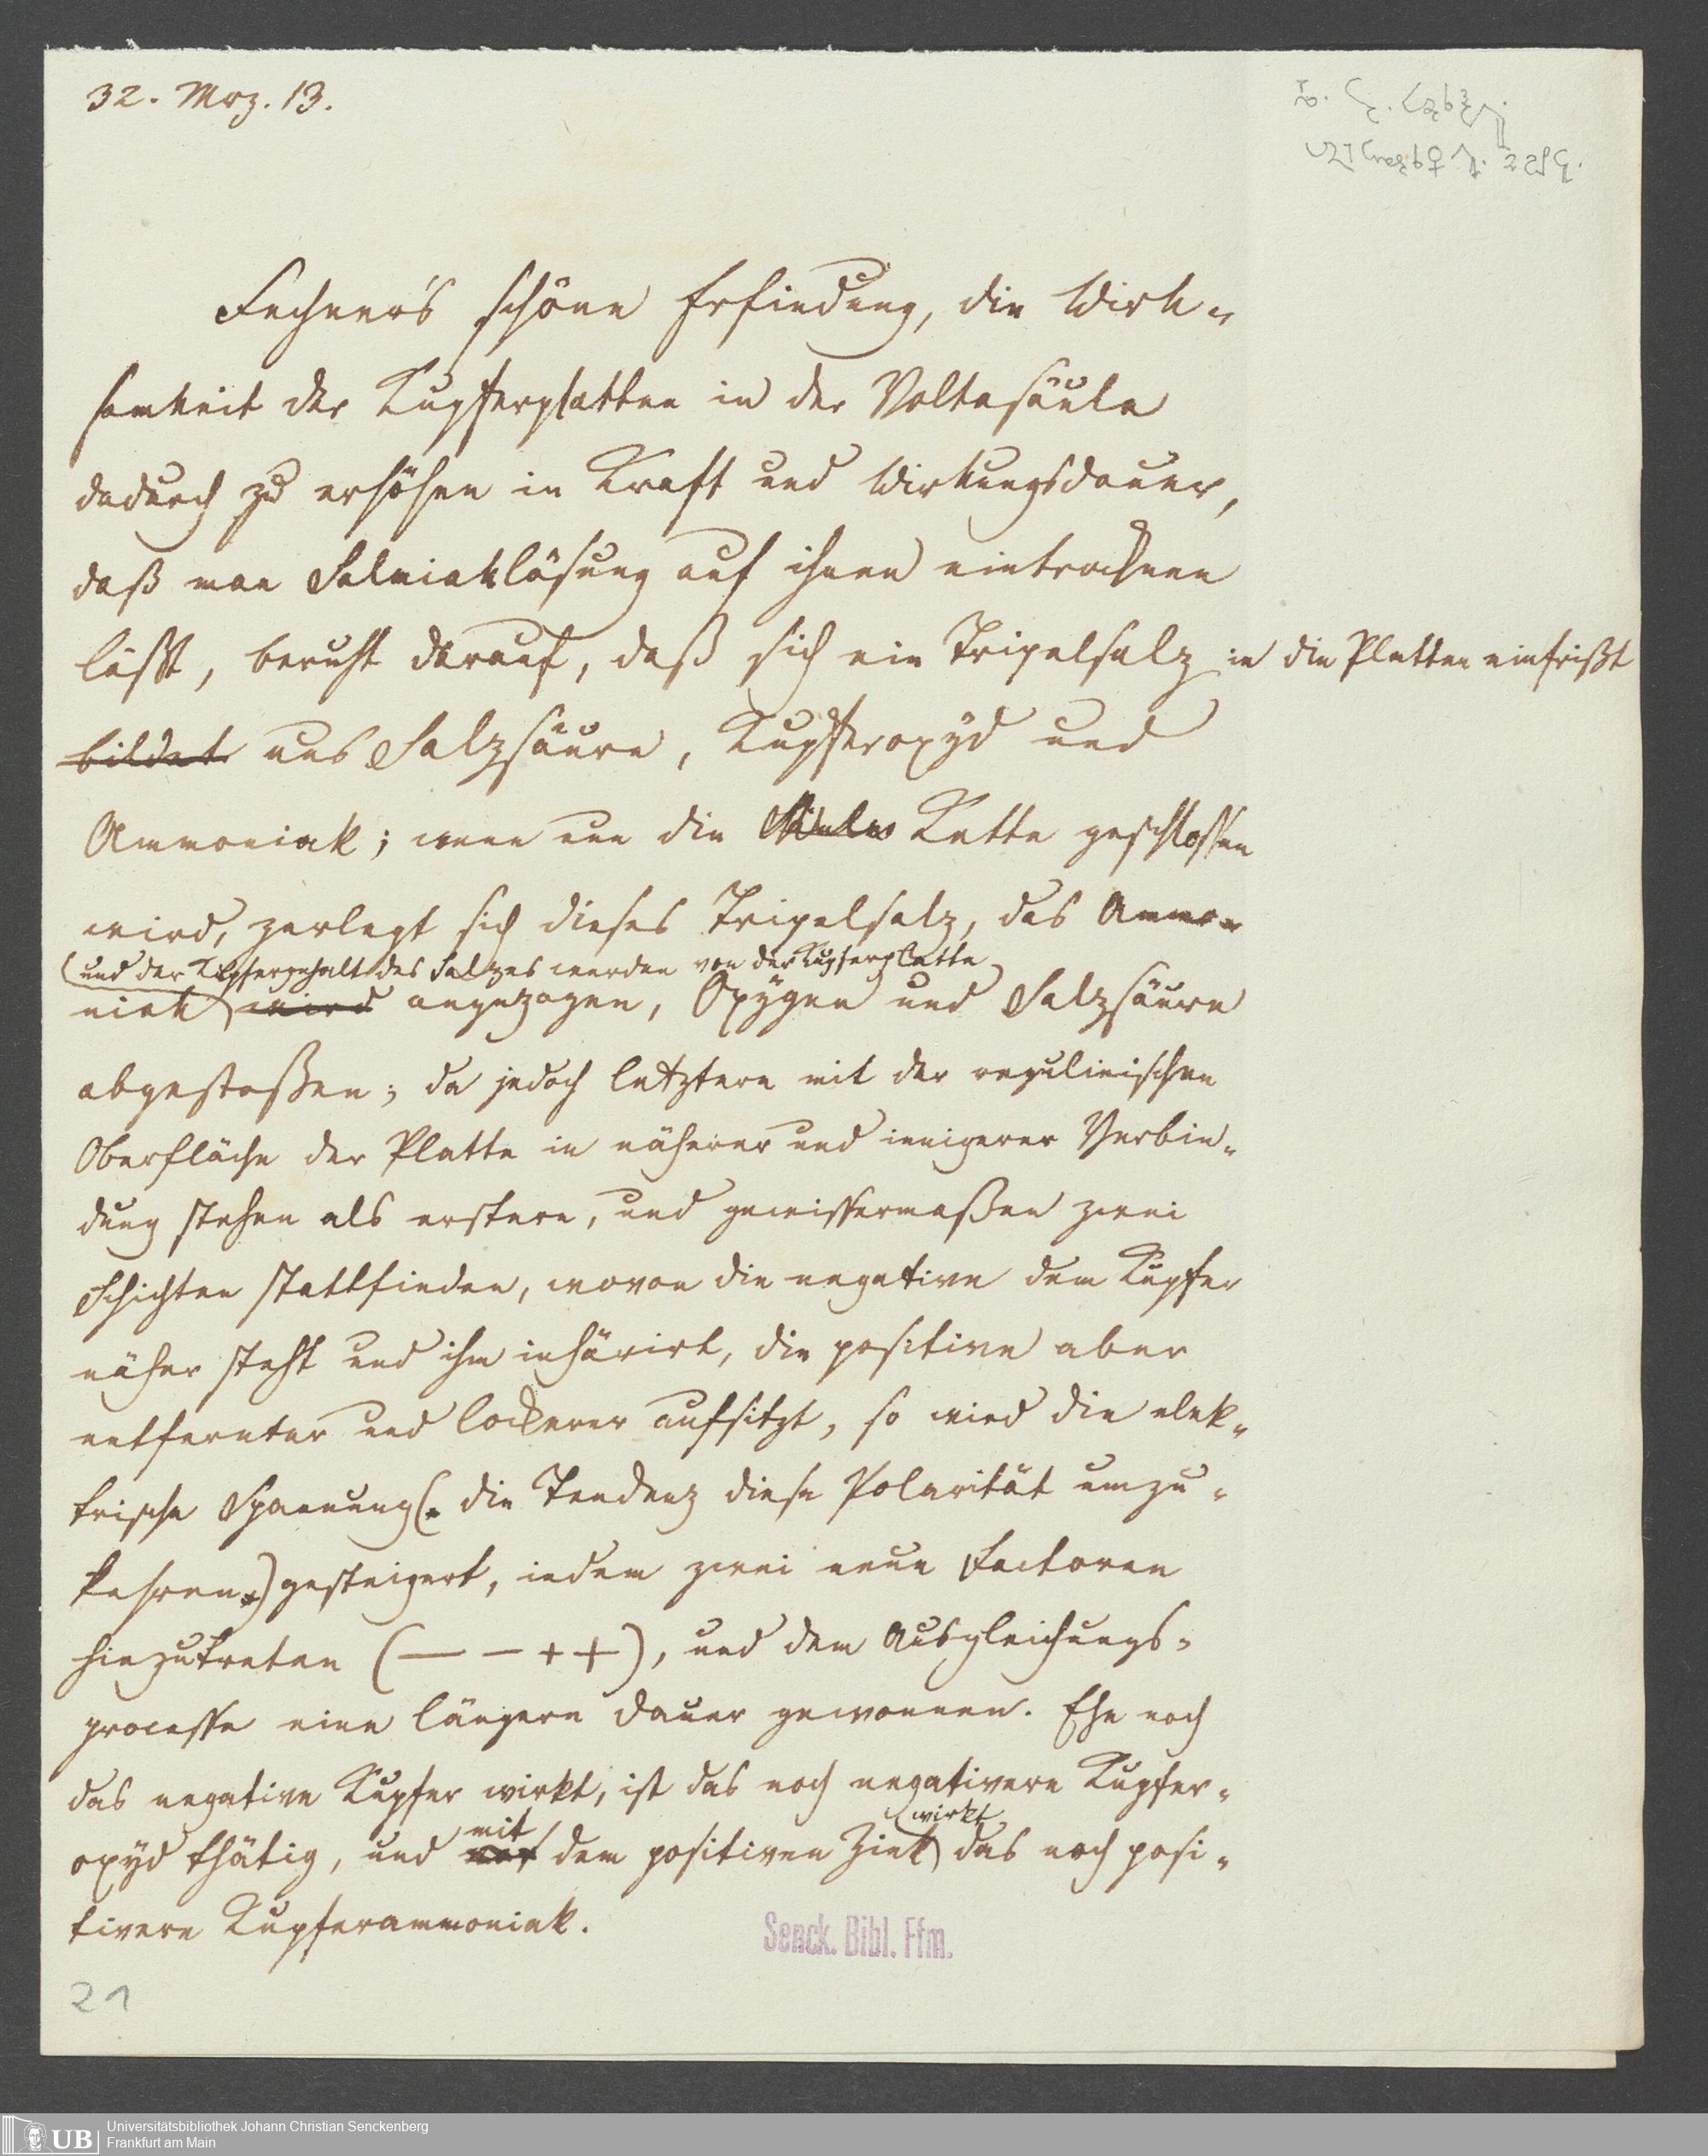 32. Mrz. 13.
Fechner's schöne Erfindung, die Wirk-
samkeit der Kupferplatten in der Voltasäule
dadurch zu erhöhen in Kraft und Wirkungsdauer,
daß man Salmiaklösung auf ihnen eintrocknen
läßt, beruht darauf, daß sich ein Tripelsalz in die Platten einfrißt
bildet aus Salzsäure, Kupferoxyd und
Ammoniak; wenn nun die Säule Kette geschlossen
wird, zerlegt sich dieses Tripelsalz, das Ammo-
und der Kupfergehalt des Salzes werden von der Kupferplatte
niak wird angezogen, Oxygen und Salzsäure
abgestoßen; da jedoch letztere mit der regulinischen
Oberfläche der Platte in näherer und innigerer Verbin-
dung stehen als erstere, und gewissermaßen zwei
Schichten stattfinden, wovon die negative dem Kupfer
näher steht und ihm inhärirt, die positive aber
entfernter und lockerer aufsitzt, so wird die elek-
trische Spannung (die Tendenz diese Polarität umzu-
kehren) gesteigert, indem zwei neue Factoren
hinzutreten (— – + +), und dem Ausgleichungs-
processe eine längere Dauer gewonnen. Ehe noch
das negative Kupfer wirkt, ist das noch negativere Kupfer-
wirkt
mit
oxyd thätig, und dem positiven Zink das noch posi-
tivere Kupferammoniak.
Senck. Bibl. Ffm.
21
UB
Universitätsbibliothek Johann Christian Senckenberg
Frankfurt am Main